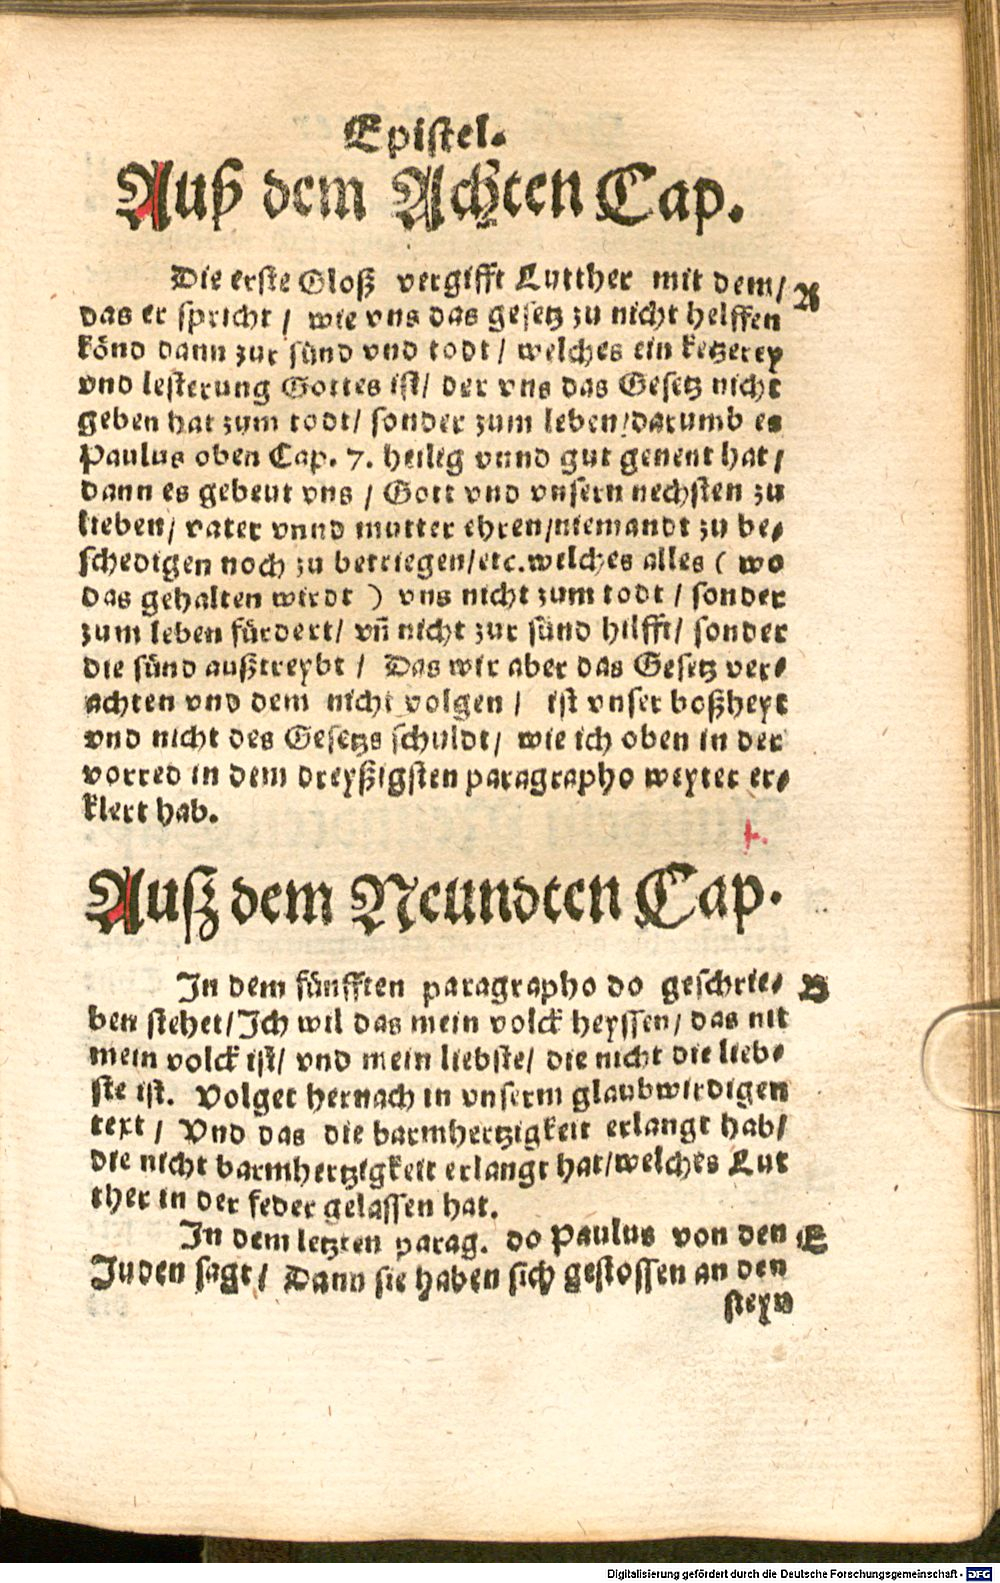 Epistel.
Auß dem Achten Cap.
Die erste Gloß vergifft Lutther mit dem/ A
das er spricht / wie vns das gesetz zu nicht helffen
könd dann zur sünd vnd todt / welches ein ketzerey
vnd lesterung Gottes ist/ der vns das Gesetz nicht
geben hat zum todt/ sonder zum leben/darumb es
Paulus oben Cap. 7. heilig vnnd gut genent hat/
dann es gebeut vns / Gott vnd vnsern nechsten zu
lieben/ vater vnnd mutter ehren/niemandt zu be⸗
schedigen noch zu betriegen/etc.welches alles ( wo
das gehalten wirdt ) vns nicht zum todt / sonder
zum leben fürdert/ vñ nicht zur sünd hilfft/ sonder
die sünd außtreybt / Das wir aber das Gesetz ver⸗
achten vnd dem nicht volgen / ist vnser boßheyt
vnd nicht des Gesetzs schuldt/ wie ich oben in der
vorred in dem dreyßigsten paragrapho weyter er⸗
klert hab.
Auß dem Neundten Cap.
In dem fünfften paragrapho do geschrie⸗ B
ben stehet/Ich wil das mein volck heyssen/ das nit
mein volck ist/ vnd mein liebste/ die nicht die lieb⸗
ste ist. Volget hernach in vnserm glaubwirdigen
text / Vnd das die barmhertzigkeit erlangt hab/
die nicht barmhertzigkeit erlangt hat/welches Lut
ther in der feder gelassen hat.
In dem letzten parag. do Paulus von den C
Juden sagt/ Dann sie haben sich gestossen an den
steyn
Digitalisierung gefördert durch die Deutsche Forschungsgemeinschaft - DFG